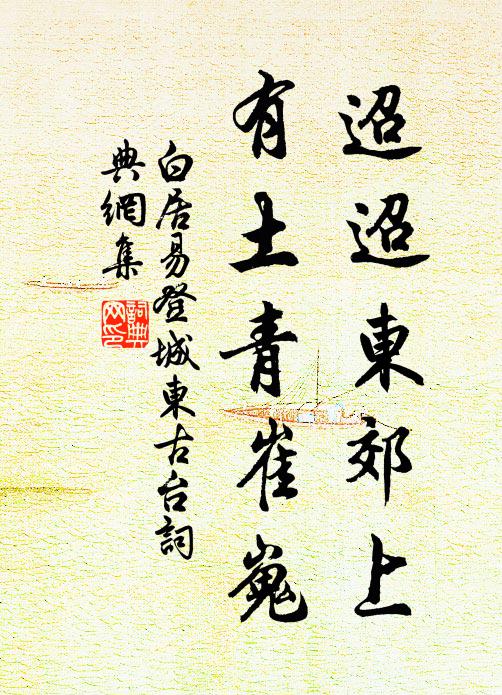 迢迢東郊上
有土青崔嵬
白居易登城東古台詞
典網集
詞典
网印